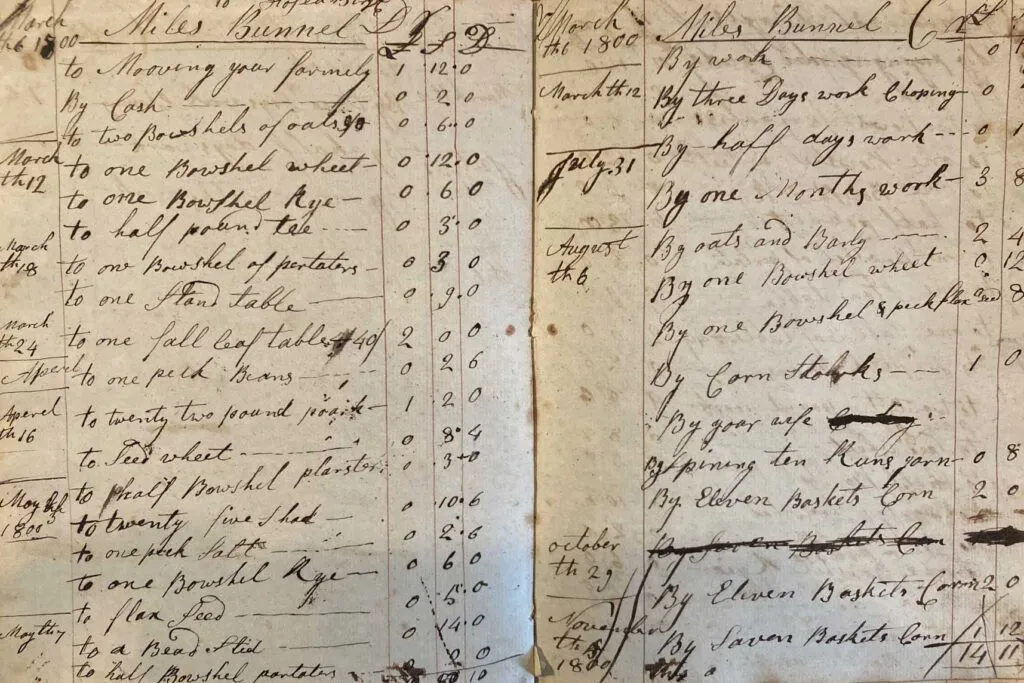 March th6 1800 Miles Bunnel D £ S D
to Mooving your famely 1 12 0
By Cash 0 2 0
to two Bowshels of oats 0 6 0
March th12 to one Bowshel wheet 0 12 0
to one Bowshel Rye 0 6 0
to half pound tee 0 3 0
March th18 to one Bowshel of pertaters 0 3 0
to one Stand table 0 9 0
March th24 to one fall leaf table 40/ 2 0 0
Aperel to one peck Beans 0 2 6
Aperel th16 to twenty two pound poark 1 2 0
to Seed wheet 0 8 4
to half Bowshel plarster 0 3 0
May 1800 to twenty five Shad 0 10 6
to one peck Salt 0 2 6
to one Bowshel Rye 0 6 0
to flax Seed 0 5 0
May th7 to a Bead Stid 0 14 0
to half Bowshel pertaters 2 0
March th6 1800 Miles Bunnel Cr £
By work 0
March th12 By three Days work Choping 0
By half days work 0 1
July 31 By one Months work 3 8
August th6 By oats and Barly 2 4
By one Bowshel wheet 0 12
By one Bowshel & peck flax Seed 8
By Corn Stolrks 1 0
By your wife
By Spining ten Runs yarn 0 8
By Eleven Baskets Corn 2 0
october th29 By Saven Baskets Corn
By Eleven Baskets Corn 2 0
November th 1800 By Saven Baskets Corn 1 12
14 11